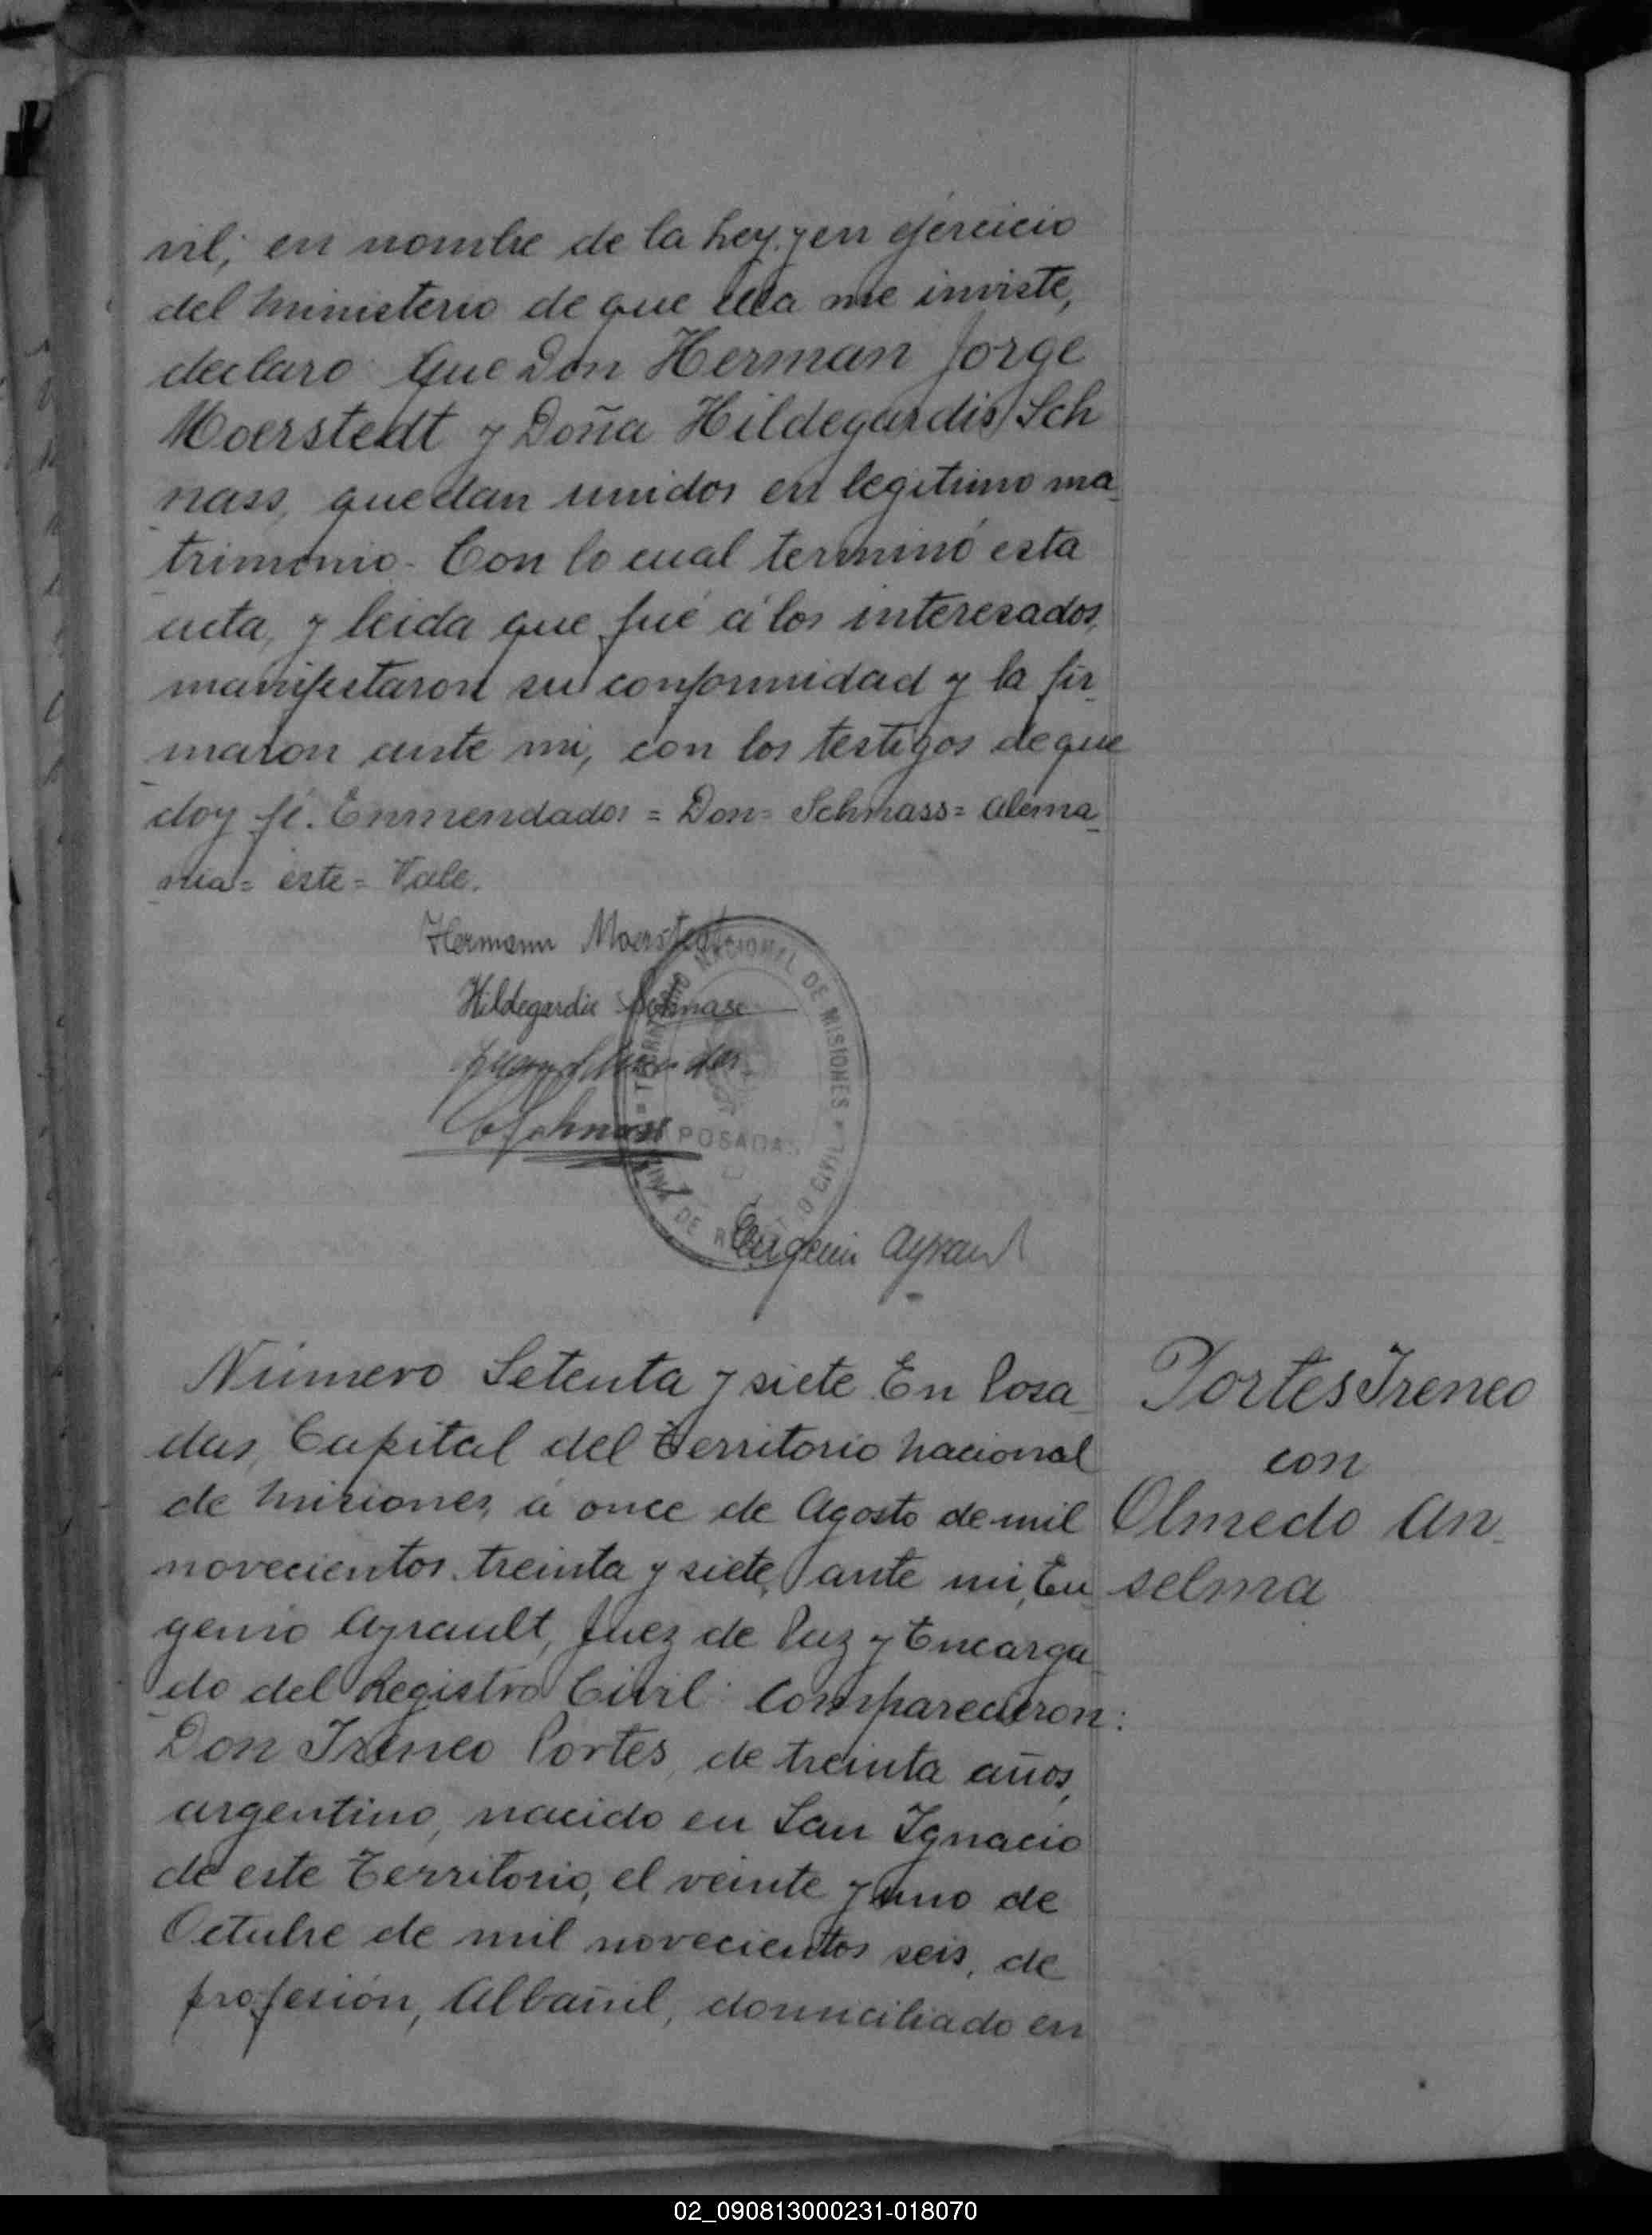 vil; en nombre de la Ley, y en ejercicio
del ministerio de que ella me inviste,
declaro que Don Herman Jorge
Moerstedt y Doña Hildegardis Sch
nass, quedan unidos en legitimo ma_
trimonio. Con lo cual terminó esta
acta, y leida que fué á los interesados,
manifestaron su conformidad y la fir_
maron ante mi, con los testigos de que
doy fé. Enmendados = Don = Schnass = Alema_
nia = este = Vale.
Hermann Moerstedt
Hildegardis Schnass
Schnass
TERRITORIO NACIONAL DE MISIONES
POSADAS
Eugenio Ayrault
Número Setenta y siete En Posa_
das, Capital del Territorio Nacional
de Misiones, á once de Agosto de mil
novecientos treinta y siete, ante mi, Eu_
genio Ayrault, Juez de Paz y Encarga_
do del Registro Civil: Comparecieron:
Don Ireneo Portes, de treinta años,
argentino, nacido en San Ignacio
de este Territorio, el veinte y uno de
Octubre de mil novecientos seis, de
profesión, Albañil, domiciliado en
Portes Ireneo
con
Olmedo An_
selma
02_090813000231-018070